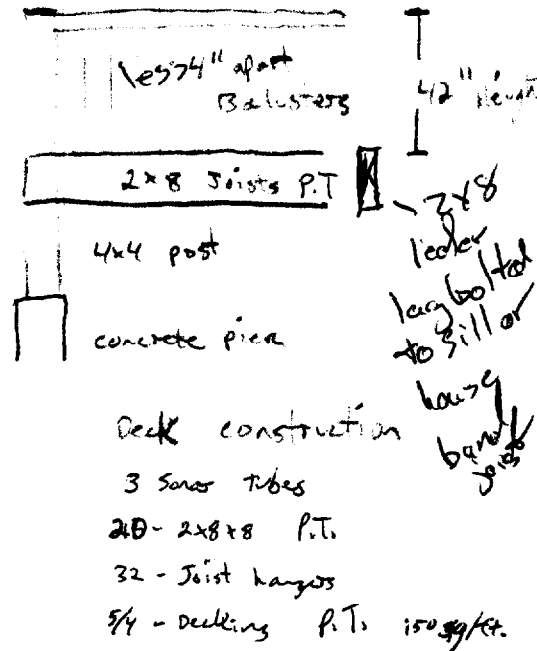 less 4" apart
Balusters
42" Height
2x8 Joists P.T
2x8
leder
lag bolted
to sill or
house
band
joist
4x4 post
concrete pier
Deck construction
3 Sono tubes
20 - 2x8x8 P.T.
32 - Joist hangers
5/4 - Decking P.T. 150 sq/ft.